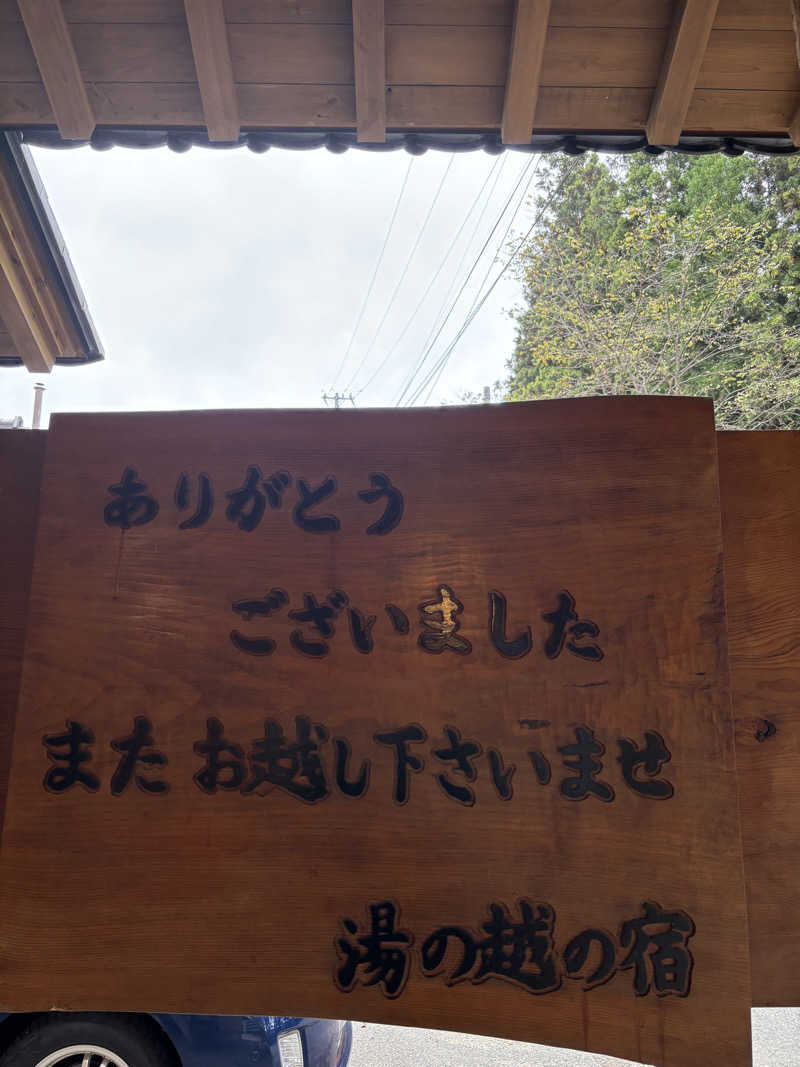 ありがとう
ございました
またお越し下さいませ
湯の越の宿